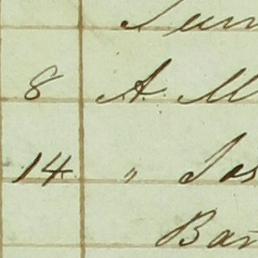 8 A. M
14 " Jos
Bar